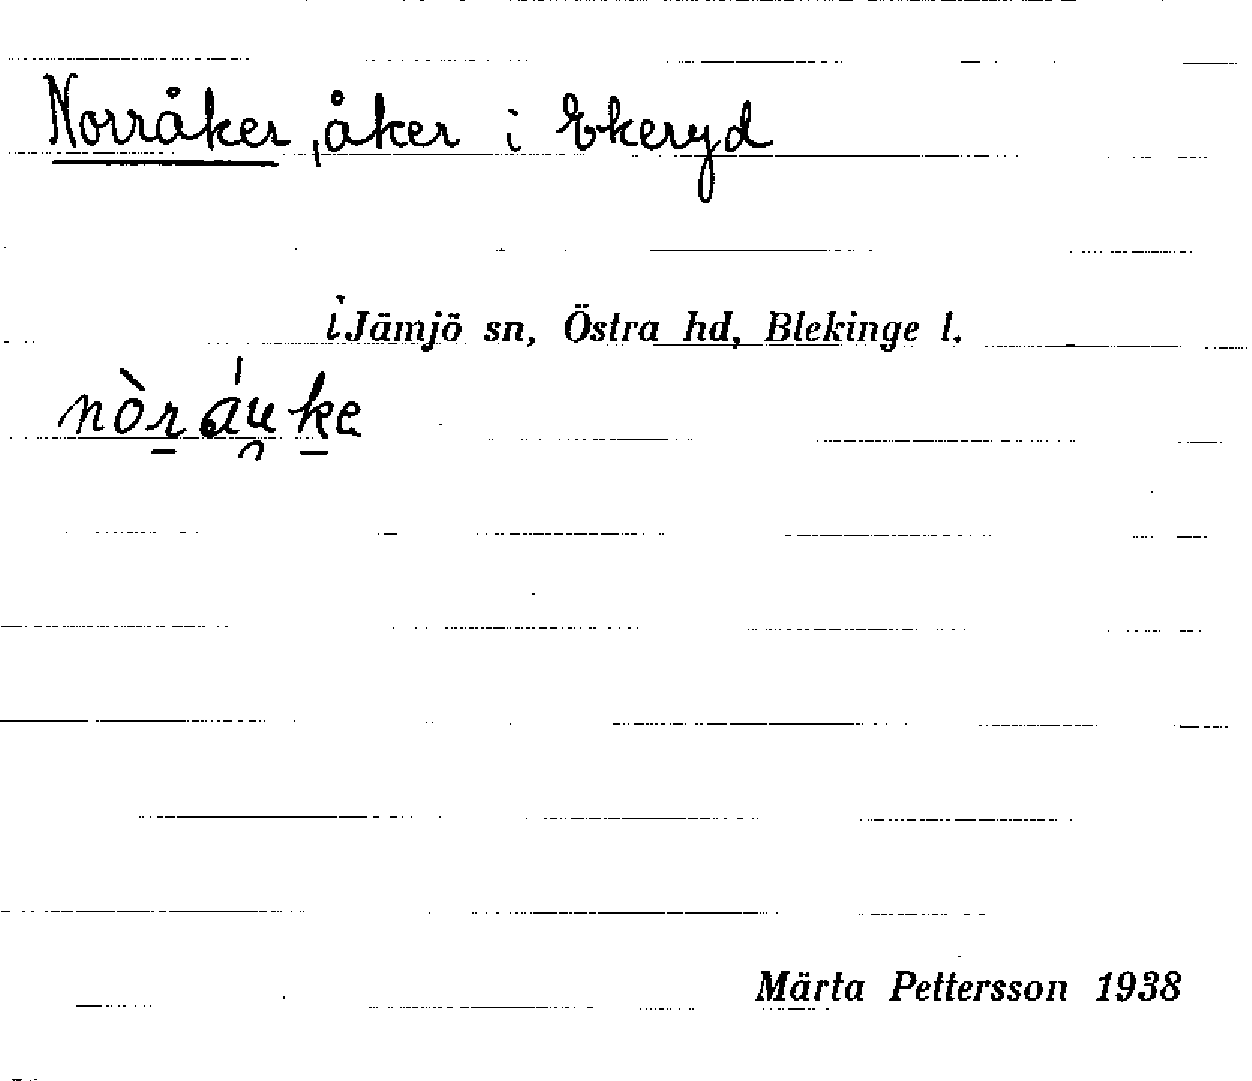 Norråker, åker i Ekeryd
i Jämjö sn, Östra hd, Blekinge l.
nòr̲áu̯k̲e
Märta Pettersson 1938